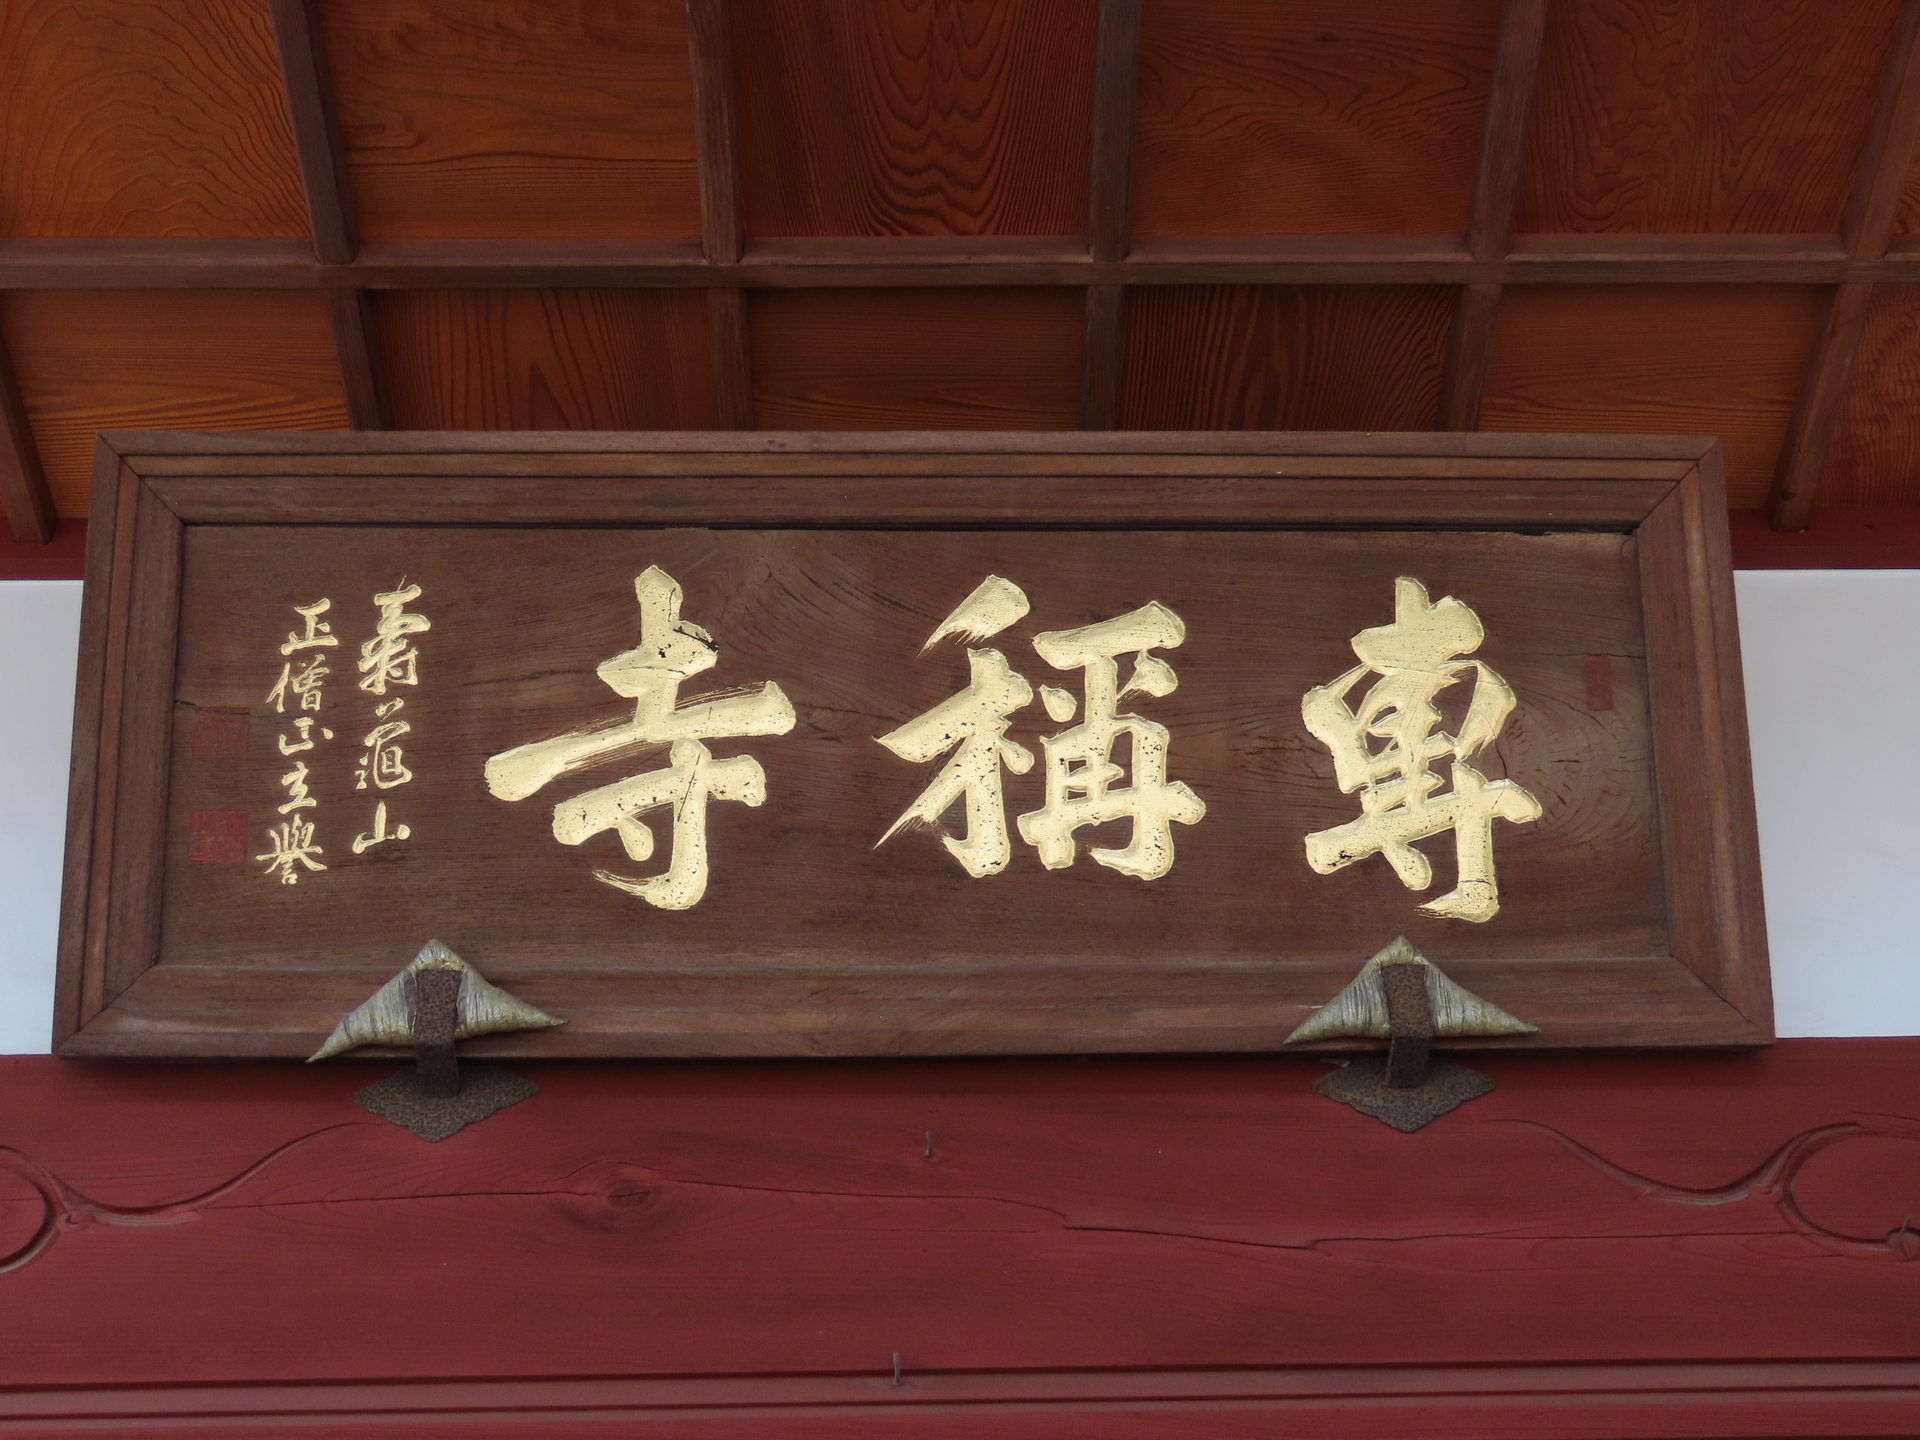 專稱寺
壽龜山
正僧正立譽